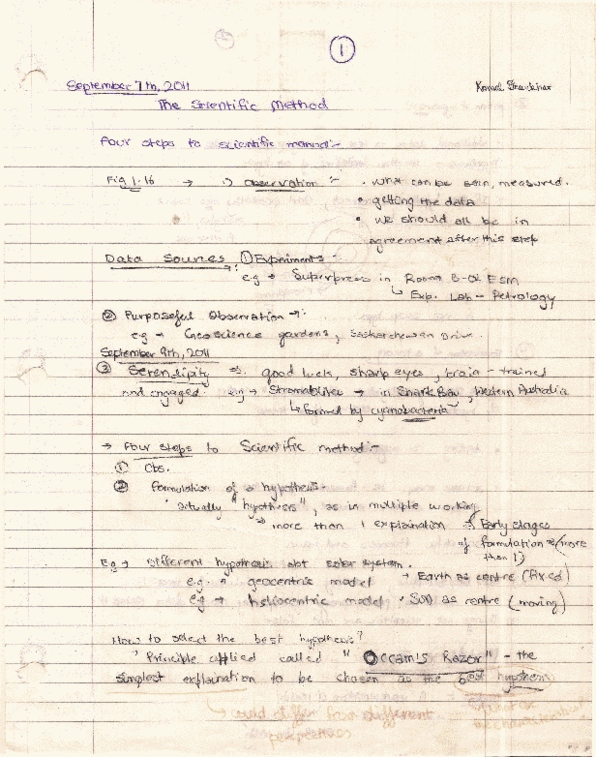 1
September 7th, 2011
The Scientific Method
Four steps to scientific method:-
Fig 1.16 → 1) Observation :- • what can be seen, measured.
• getting the data
• we should all be in
agreement after this step
Data Sources: ① Experiments :-
e.g → Superpress in Room B-02 ESM
↳ Exp. Lab - Petrology
② Purposeful Observation →:
e.g → Geoscience gardens, Saskatchewan Drive.
September 9th, 2011
③ Serendipity →: good luck, sharp eyes, brain - trained
and engaged. e.g → Stromatolites → in Shark Bay, Western Australia
↳ formed by cyanobacteria
→ Four steps to Scientific method:-
① Obs.
② Formulation of a hypothesis:-
• actually "hypothesis", as in multiple working
→ more than 1 explaination → Early stages
of formulation (more
than 1)
E.g → Different hypothesis abt solar system.
e.g. → geocentric model → Earth as centre (fixed)
e.g → heliocentric model • Sun as centre (moving)
How to select the best hypothesis?
• Principle applied called "Occram's Razor" - the
simplest explaination to be chosen as the best hypothesis